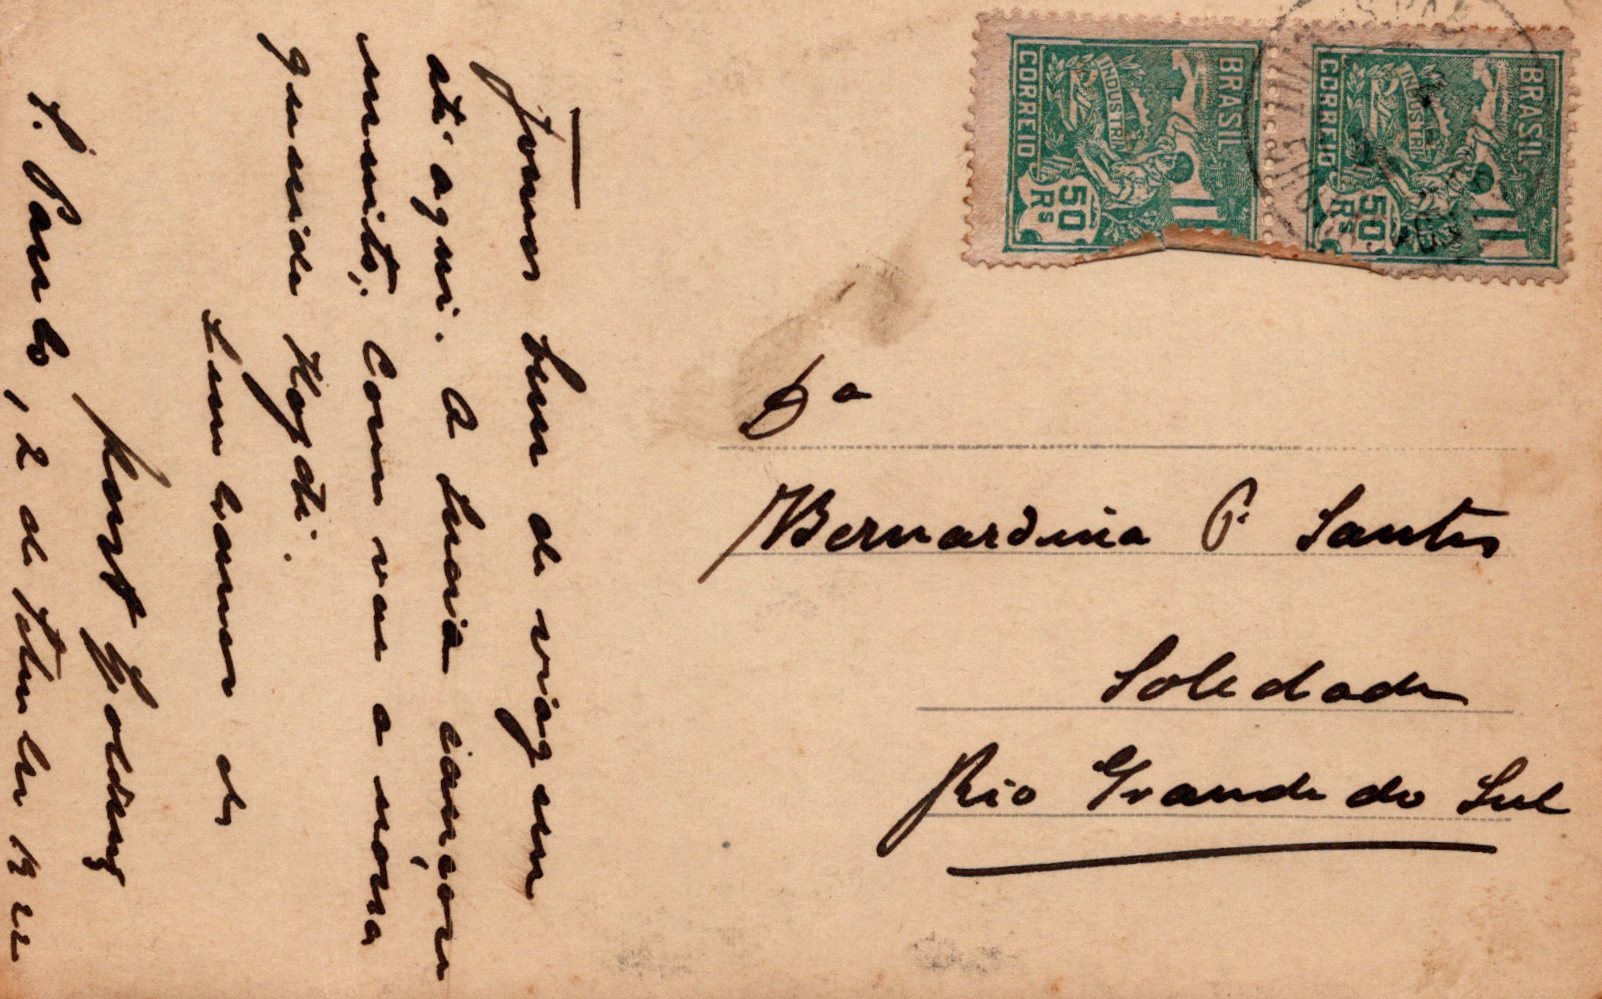 Fomos bem de viagem
até aqui. A Lucia cançou
muito. Como vae a nossa
querida Hoydi.
Lembranças de
S. Paulo, 2 de Setembro 1922
BRASIL
CORREIO
INDUSTRIA
50
Rs
BRASIL
CORREIO
INDUSTRIA
50
Rs
Dª
Bernardina P. Santos
Soledade
Rio Grande do Sul